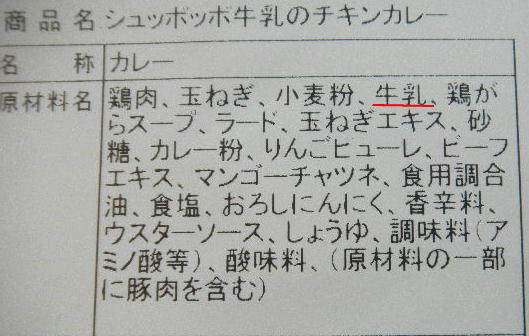 商品名 シュッポッポ牛乳のチキンカレー
名称 カレー
原材料名 鶏肉、玉ねぎ、小麦粉、牛乳、鶏が
らスープ、ラード、玉ねぎエキス、砂
糖、カレー粉、りんごピューレ、ビーフ
エキス、マンゴーチャツネ、食用調合
油、食塩、おろしにんにく、香辛料、
ウスターソース、しょうゆ、調味料(ア
ミノ酸等)、酸味料、(原材料の一部
に豚肉を含む)